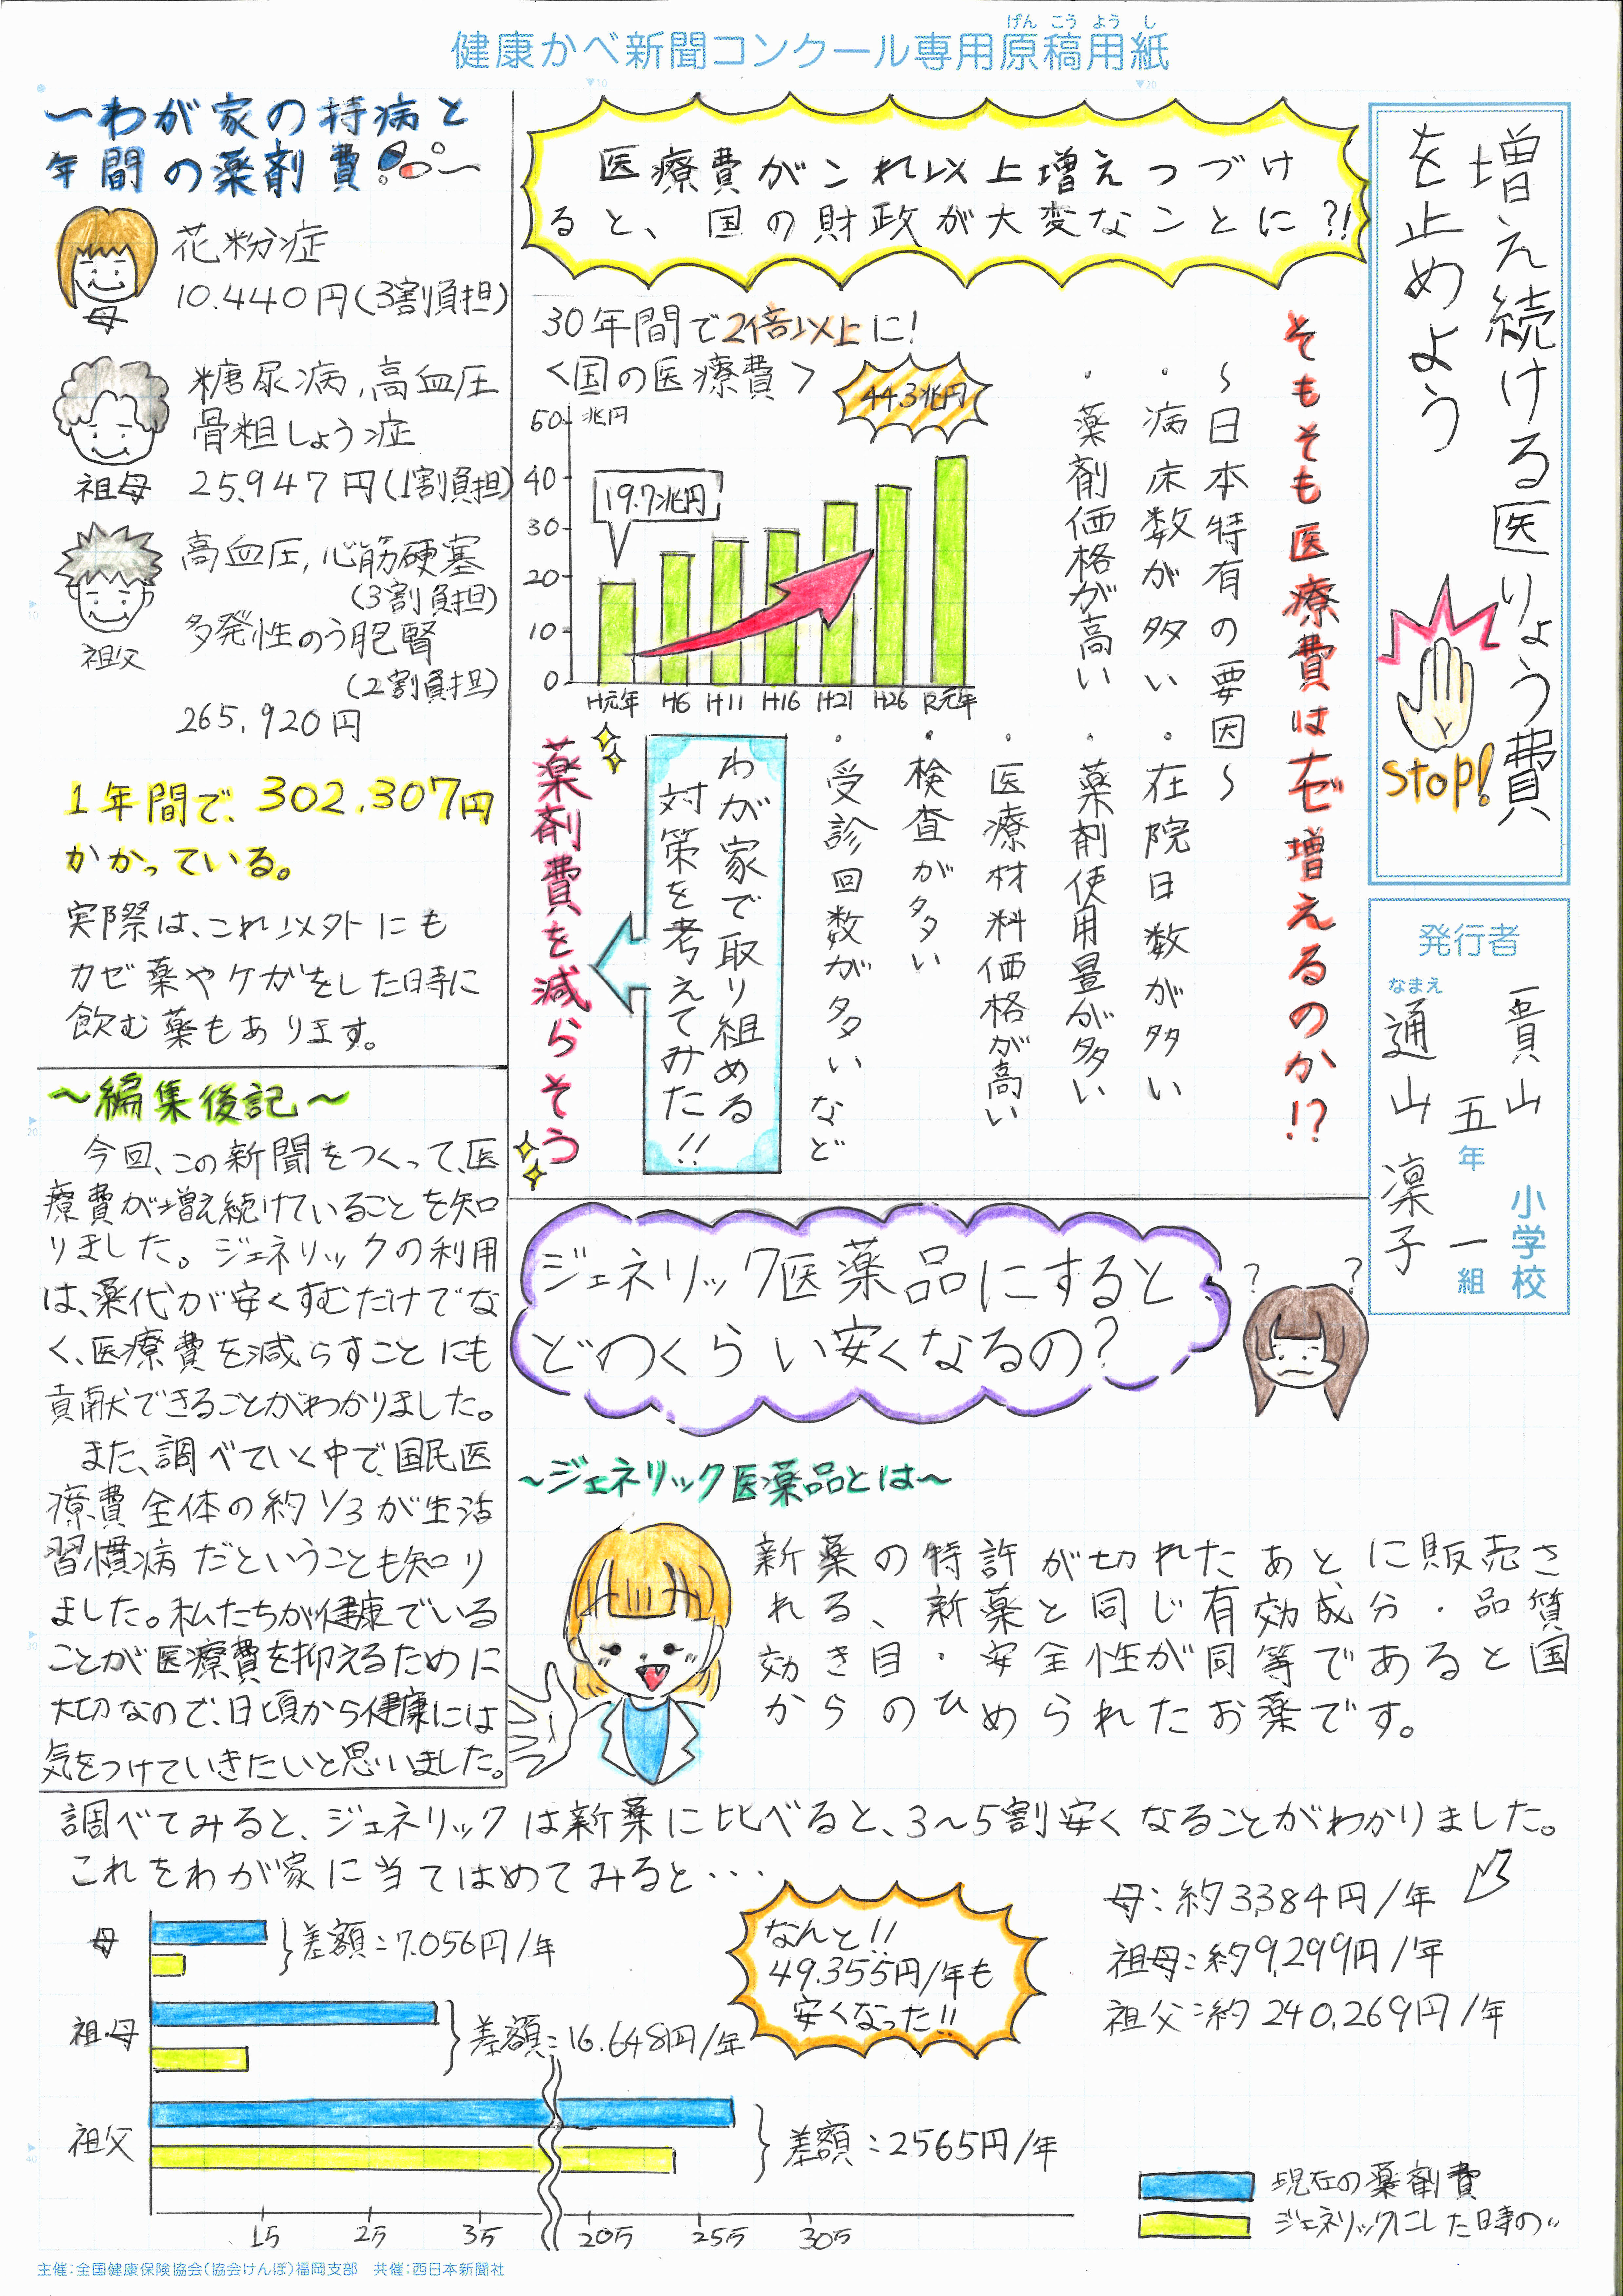 げんこうようし
健康かべ新聞コンクール専用原稿用紙
増え続ける医りょう費
を止めよう
STOP!
発行者
貴山 小学校
五年 一組
なまえ
通山 凜子
医療費がこれ以上増えつづけ
ると、国の財政が大変なことに?!
そもそも医療費はナゼ増えるのか!?
～日本特有の要因～
・病床数が多い ・在院日数が多い
・薬剤価格が高い ・薬剤使用量が多い
・医療材料価格が高い
・検査が多い
・受診回数が多い など
30年間で2倍以上に!
<国の医療費>
44.3兆円
19.7兆円
兆円
50
40
30
20
10
0
H元年 H6 H11 H16 H21 H26 R元年
わが家で取り組める
対策を考えてみた!!
薬剤費を減らそう
～わが家の持病と
年間の薬剤費～
母
花粉症
10.440円(3割負担)
祖母
糖尿病,高血圧
骨粗しょう症
25.947円(1割負担)
祖父
高血圧,心筋硬塞
(3割負担)
多発性のう胞腎
(2割負担)
265.920円
1年間で、302.307円
かかっている。
実際は、これ以外にも
カゼ薬やケガをした時に
飲む薬もあります。
～編集後記～
今回、この新聞をつくって、医
療費が増え続けていることを知
りました。ジェネリックの利用
は、薬代が安くすむだけでな
く、医療費を減らすことにも
貢献できることがわかりました。
また、調べていく中で、国民医
療費全体の約1/3が生活
習慣病だということも知り
ました。私たちが健康でいる
ことが医療費を抑えるために
大切なので、日頃から健康には
気をつけていきたいと思いました。
ジェネリック医薬品にすると
どのくらい安くなるの?
? ?
～ジェネリック医薬品とは～
新薬の特許が切れたあとに販売さ
れる、新薬と同じ有効成分・品質
効き目・安全性が同等であると国
からのひめられたお薬です。
調べてみると、ジェネリックは新薬に比べると、3～5割安くなることがわかりました。
これをわが家に当てはめてみると・・・
母:約3384円/年
祖母:約9,299円/年
祖父:約240,269円/年
なんと!!
49.355円/年も
安くなった!!
母
差額:7.056円/年
祖母
差額:16.648円/年
祖父
差額:2565円/年
1万 2万 3万 20万 25万 30万
現在の薬剤費
ジェネリックにした時の〃
主催:全国健康保険協会(協会けんぽ)福岡支部 共催:西日本新聞社